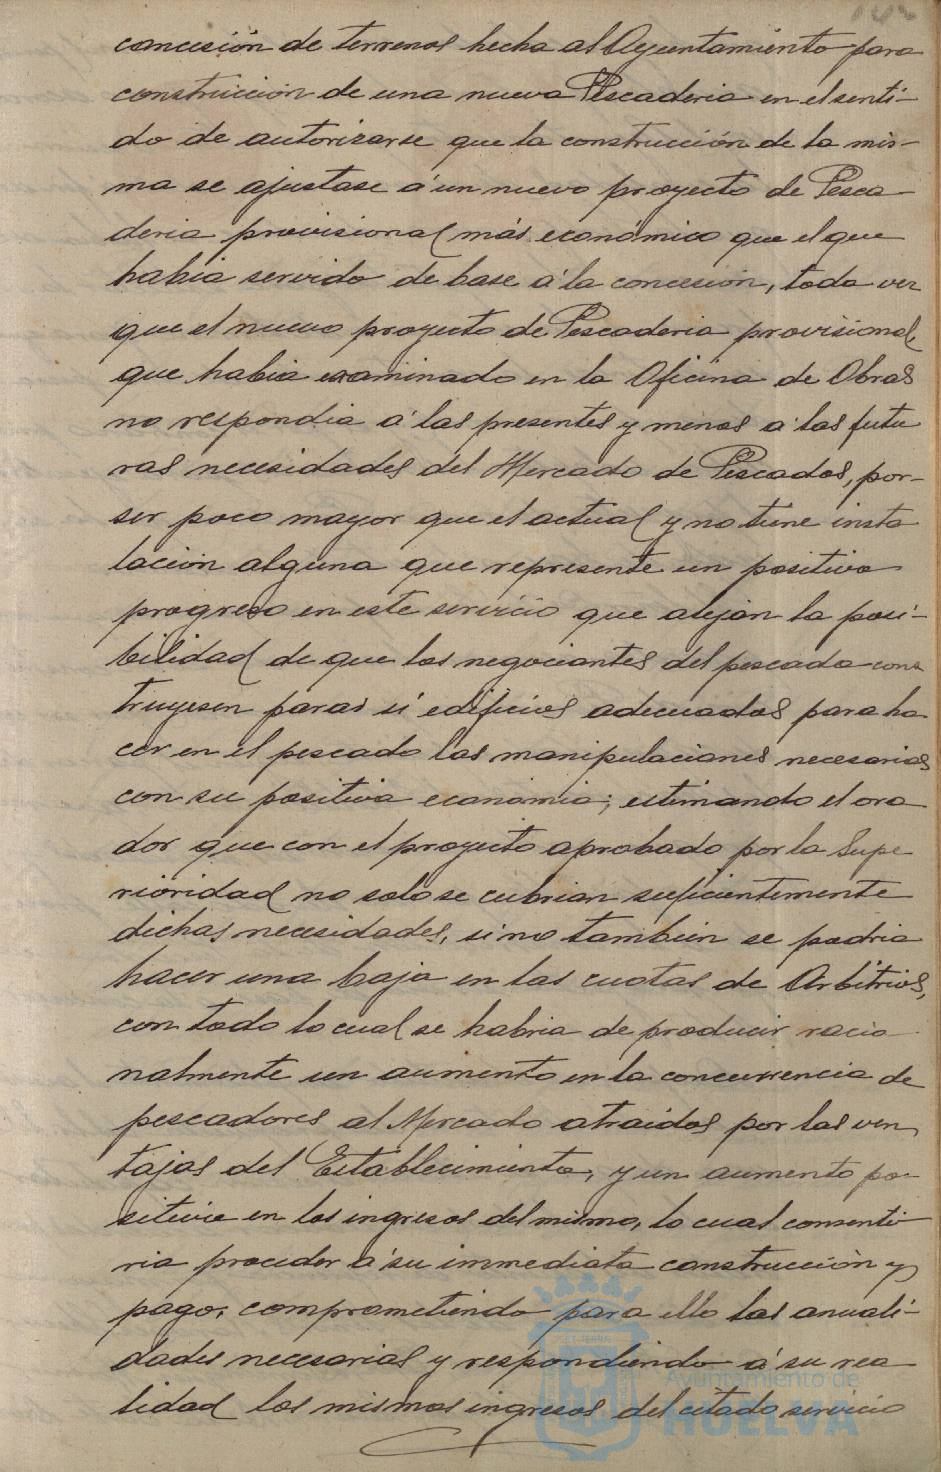 concesión de terrenos hecha al Ayuntamiento para
construccion de una nueva Pescaderia en el senti-
do de autorizarse que la construcción de la mis-
ma se ajustase á un nuevo proyecto de Pesca-
deria provisional más económico que el que
habia servido de base á la concesión, toda vez
que el nuevo proyecto de Pescaderia provisional
que habia examinado en la Oficina de Obras
no respondia á las presentes y menos á las futu
ras necesidades del Mercado de Pescados, por-
ser poco mayor que el actual y no tiene insta
lación alguna que represente un positivo
progreso en este servicio que alejan la posi-
bilidad de que los negociantes del pescado cons
truyesen para si edificios adecuados para ha
cer en el pescado las manipulaciones necesarias
con su positiva economia; estimando el ora
dor que con el proyecto aprobado por la Supe
rioridad no solo se cubrian suficientemente
dichas necesidades, sino tambien se podria
hacer una baja en las cuotas de Arbitrios,
con todo lo cual se habria de producir racio
nalmente un aumento en la concurrencia de
pescadores al Mercado atraidos por las ven
tajas del Establecimiento, y un aumento po-
sitivo en los ingresos del mismo, lo cual consenti-
ria proceder á su immediata construcción y
pago, comprometiendo para ello las anuali-
dades necesarias y respondiendo á su rea
lidad los mismos ingresos del citado servicio
Ayuntamiento de
HUELVA